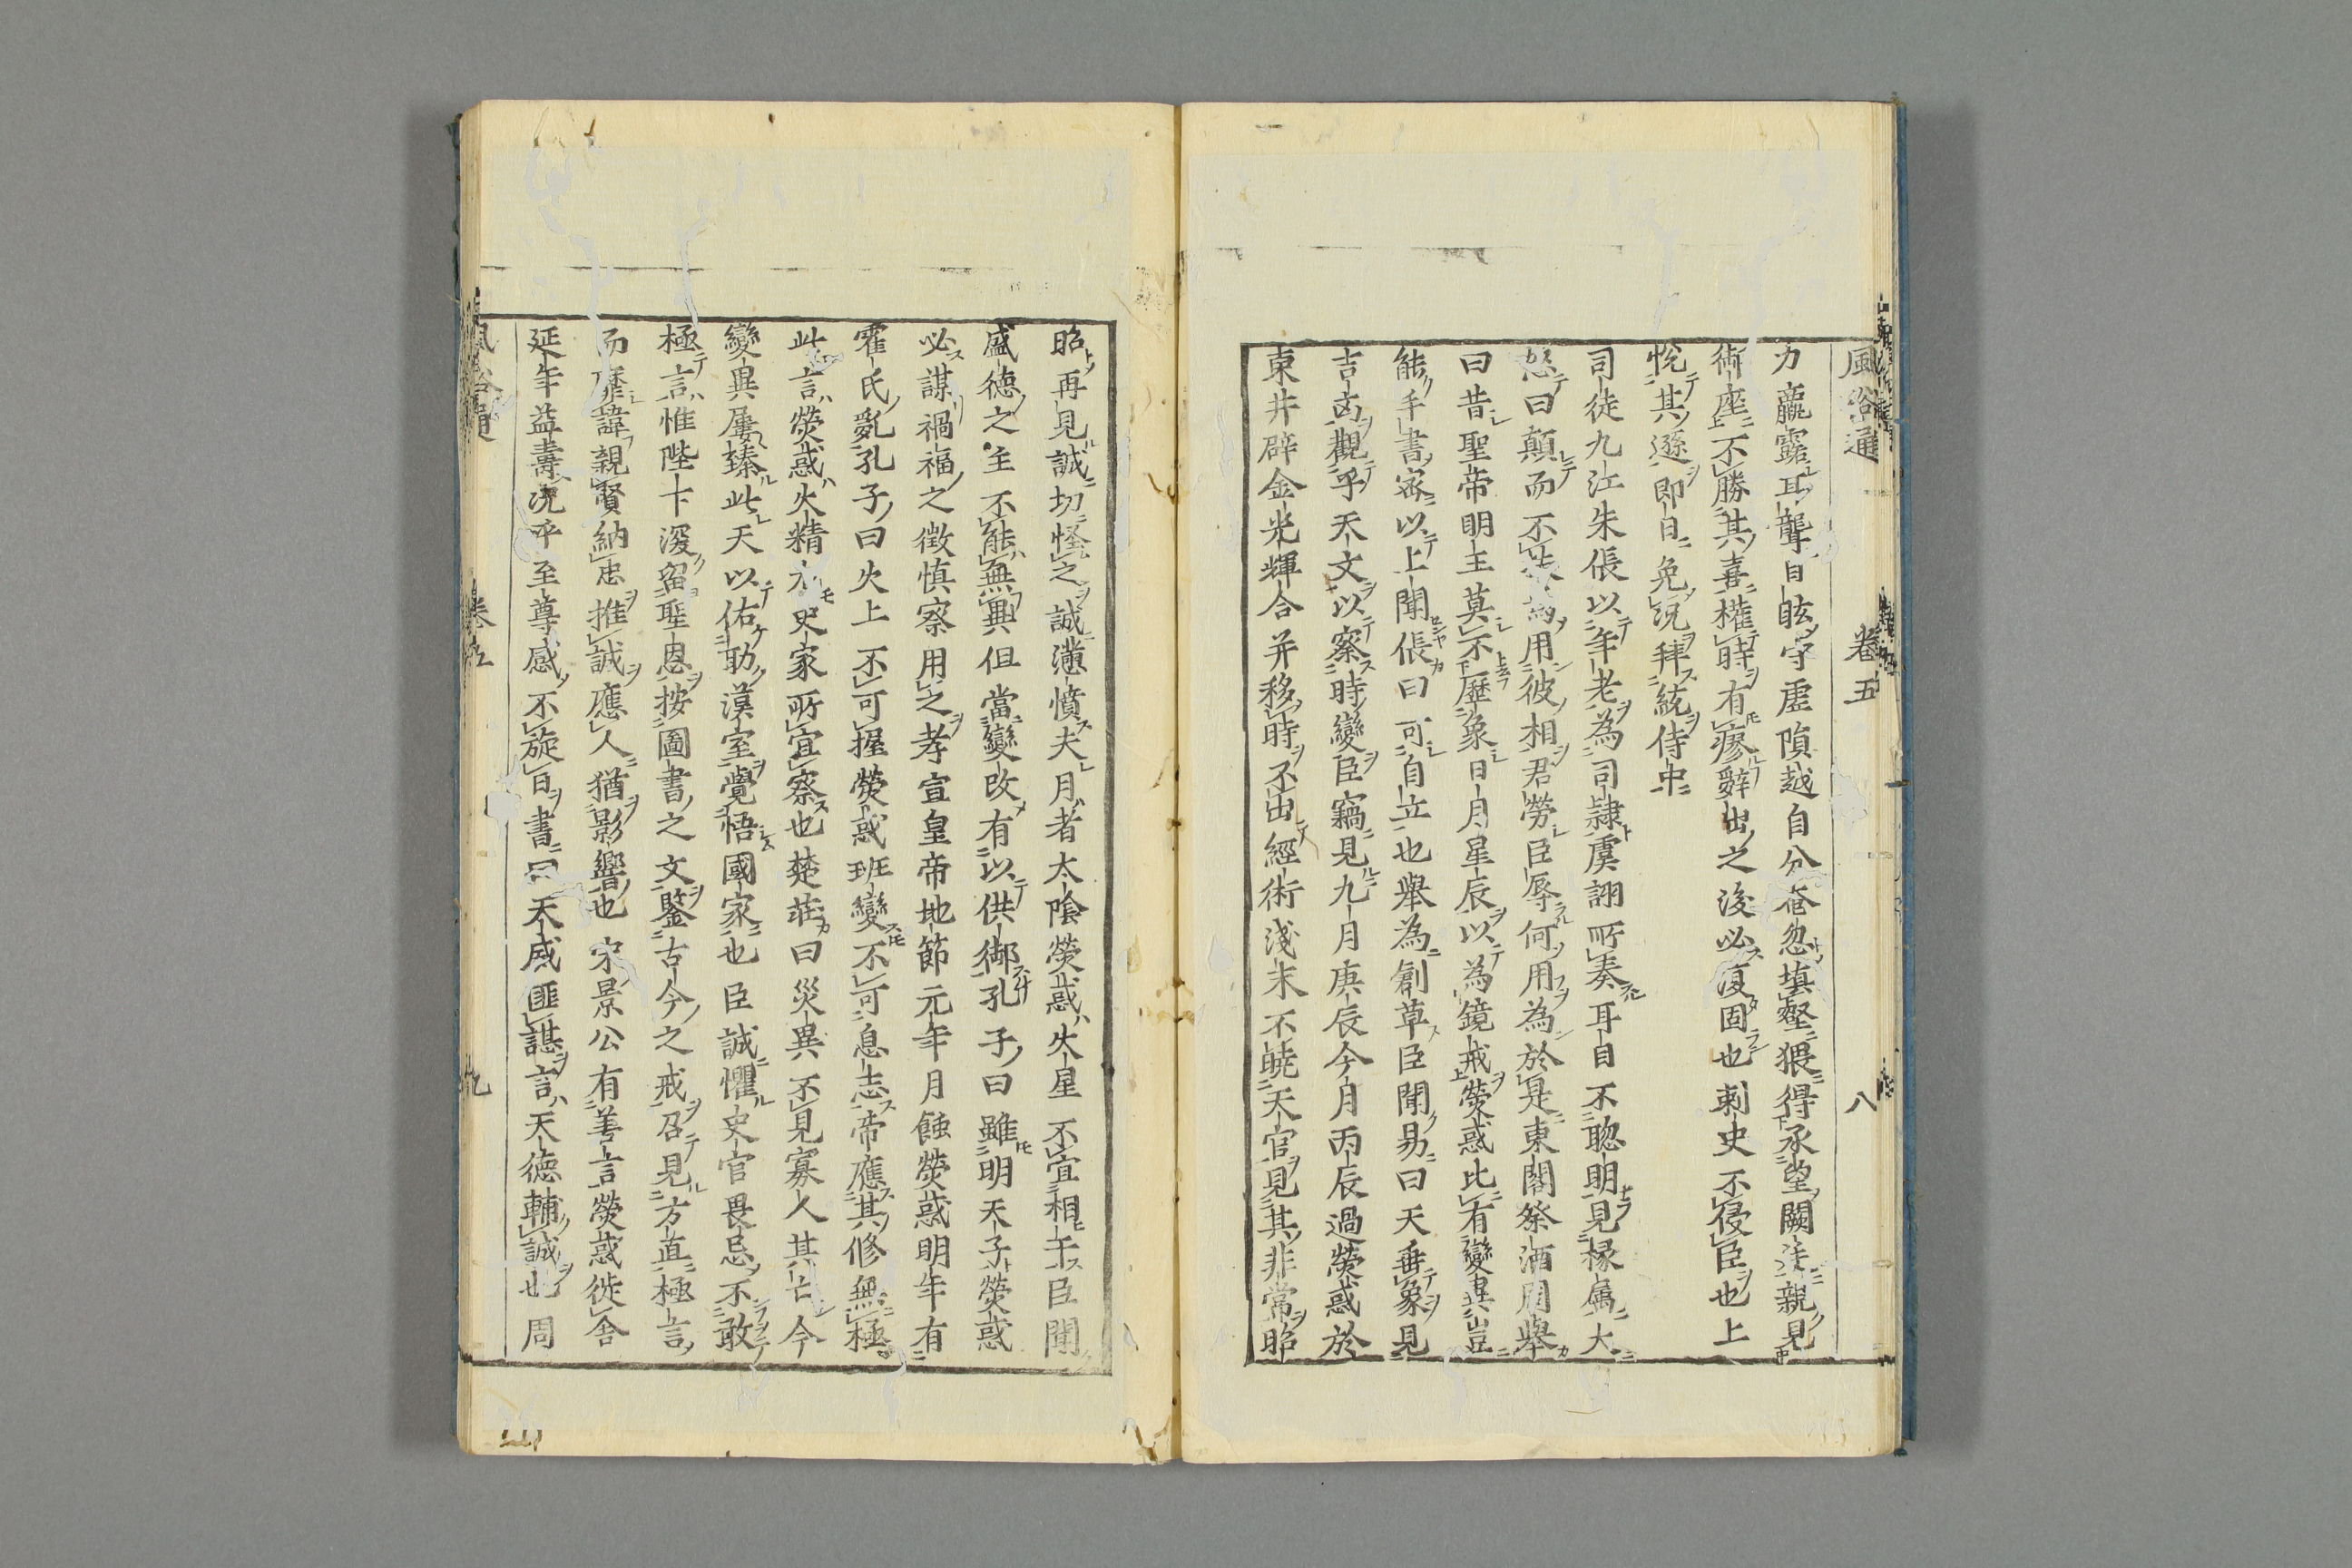 風俗通 卷五 八
力羸露耳聾目眩守虚隕越自分奄忽填壑猥得承望闕廷親見
御座不勝其喜權時有瘳辭出之後必復固也刺史不侵臣也上
悅其遜即日免況拜統侍中
司徒九江朱倀以年老為司隸虞詡所奏耳目不聰明見掾屬大
怒曰顛而不扶焉用彼相君勞臣辱何用為於是東閤祭酒周舉
曰昔聖帝明主莫不歷象日月星辰以為鏡戒熒惑比有變異豈
能手書密以上聞倀曰可自立也舉為創草臣聞易曰天垂象見
吉凶觀乎天文以察時變臣竊見九月庚辰今月丙辰過熒惑於
東井辟金光輝合并移時不出經術淺末不曉天官見其非常昭
昭再見誠切怪之誠懣憤夫月者太陰熒惑火星不宜相干臣聞
盛德之主不能無異但當變改有以供御孔子曰雖明天子熒惑
必謀禍福之徵慎察用之孝宣皇帝地節元年月蝕熒惑明年有
霍氏亂孔子曰火上不可握熒惑班變不可息志帝應其修無極
此言熒惑火精亦史家所宜察也楚莊曰災異不見寡人其亡今
變異屢臻此天以佑助漢室覺悟國家也臣誠懼史官畏忌不敢
極言惟陛下深留聖恩按圖書之文鑒古今之戒召見方直極言
而靡諱親賢納忠推誠應人猶影響也宋景公有善言熒惑徙舍
延年益壽況乎至尊感不旋日書曰天威匪諶言天德輔誠也周
卷五 九